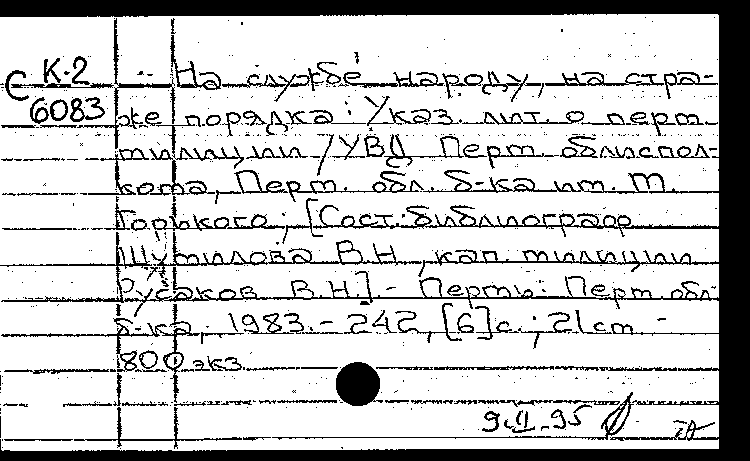 С К-2 6083
На службе народу, на стра-
же порядка: Указ. лит. о перм.
милиции / УВД Перм. облиспол-
кома, Перм. обл. б-ка им. М.
Горького; [Сост.: библиограф
Шумилова В.Н., кап. милиции
Русаков В.Н.]. - Пермь: Перм. обл.
б-ка, 1983. - 242, [6] с.; 21 см. -
800 экз.
9.II.95